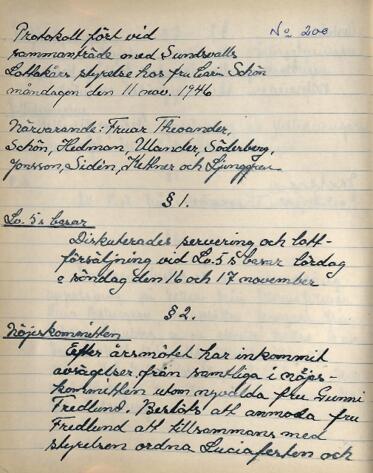 Protokoll fört vid No 200
sammanträde med Sundsvalls
Lottakårs styrelse hos fru Karin Schön
måndagen den 11 nov. 1946
Närvarande: Fruar Theander,
Schön, Hedman, Ulander, Söderberg,
Jonsson, Sidén, Hekner och Ljunggren
§ 1.
Lv. 5s basar
Diskuterades servering och lott-
försäljning vid Lv. 5s basar lördag
o söndag den 16 och 17 november
§ 2.
Nöjeskommittén
Efter årsmötet har inkommit
avsägelser från samtliga i nöjes-
kommittén utom nyvalda fru Gunni
Fredlund. Beslöts att anmoda fru
Fredlund att tillsammans med
styrelsen ordna Luciafesten och